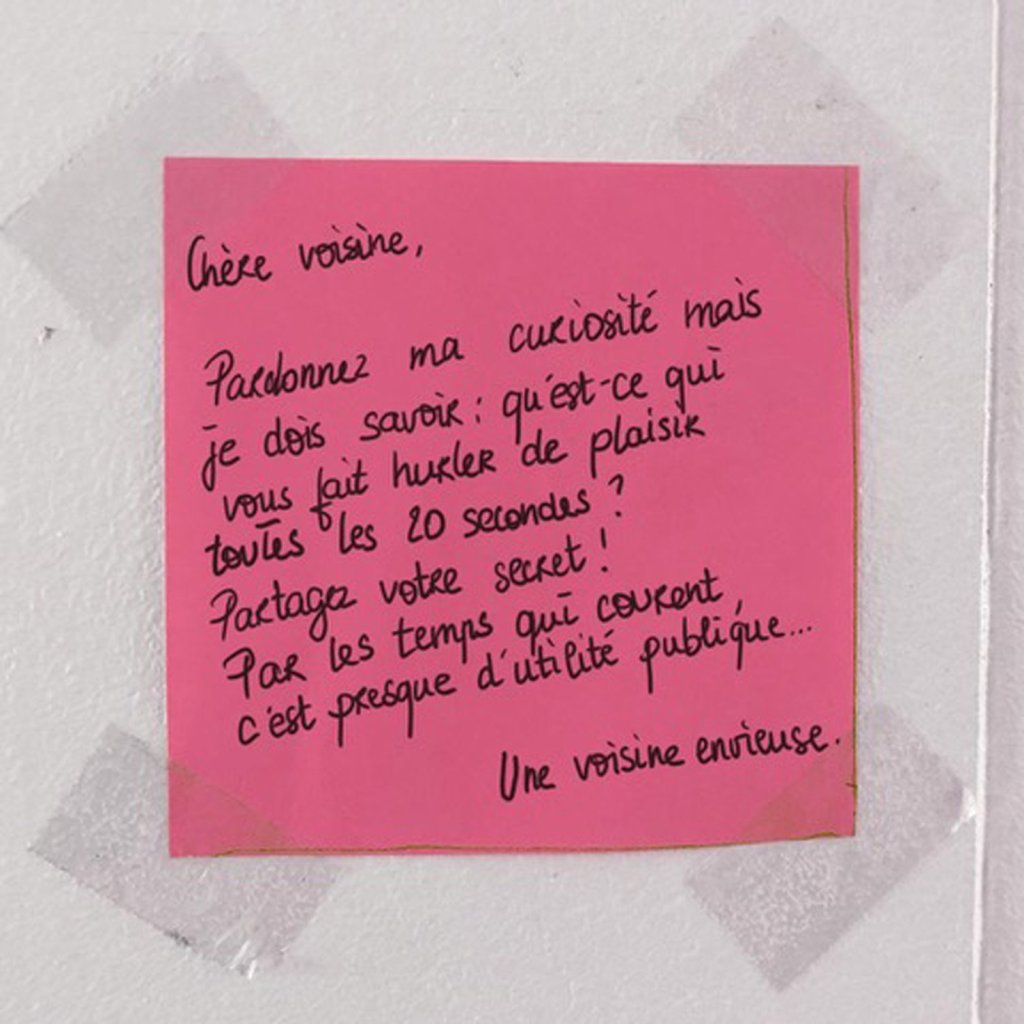 Chère voisine,
Pardonnez ma curiosité mais
je dois savoir : qu'est-ce qui
vous fait hurler de plaisir
toutes les 20 secondes ?
Partagez votre secret !
Par les temps qui courent,
c'est presque d'utilité publique...
Une voisine envieuse.